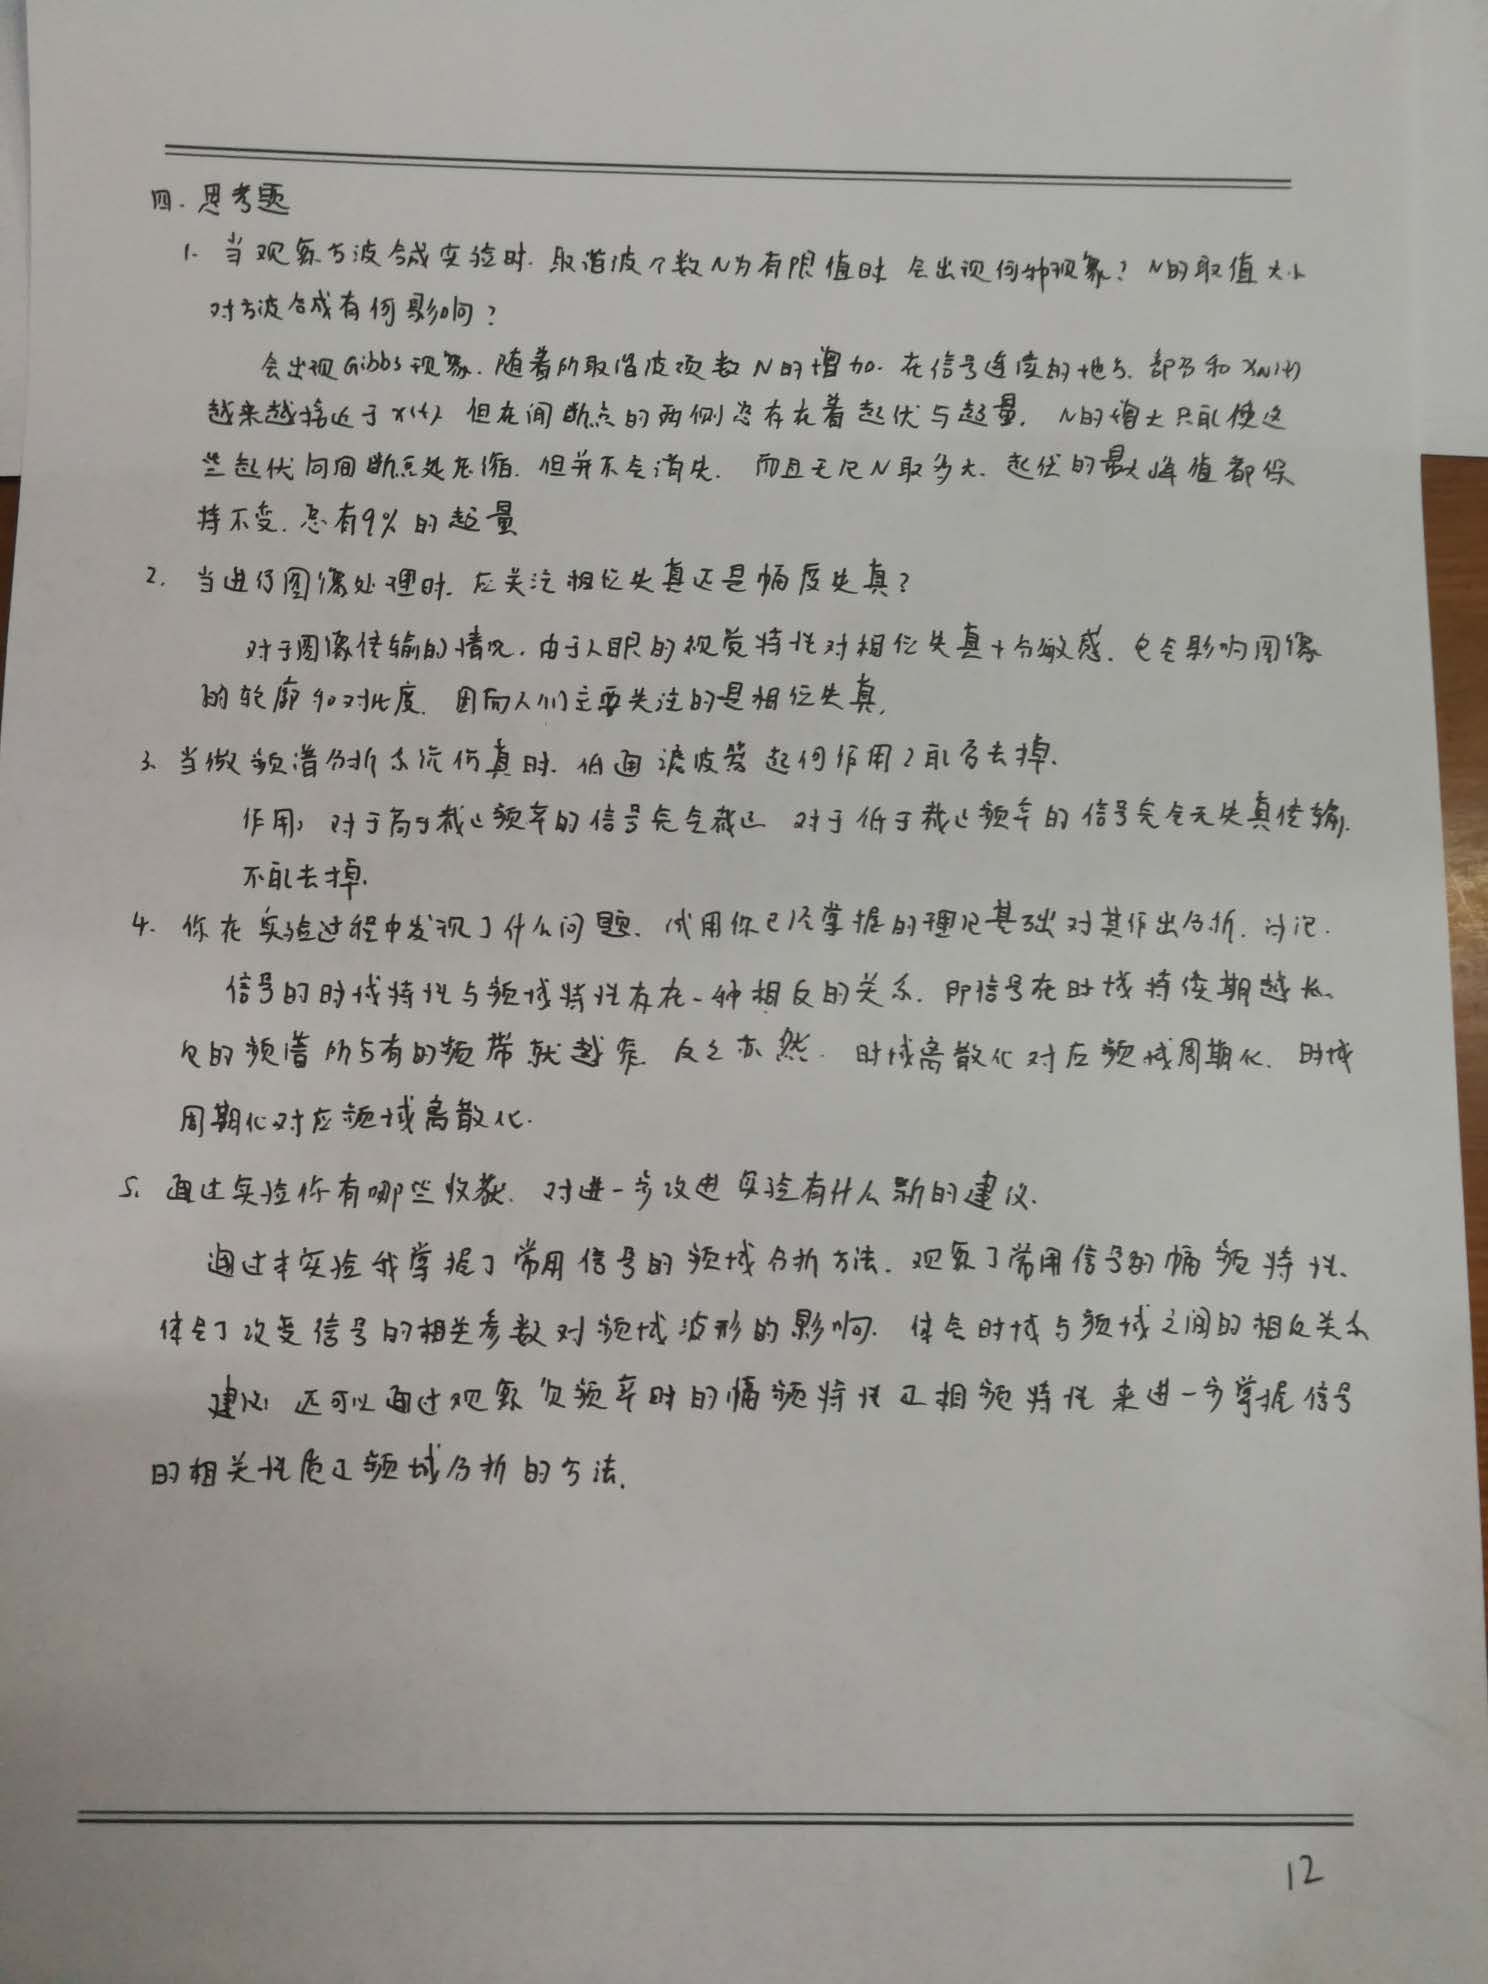 四. 思考题
1. 当观察方波合成实验时. 取谐波个数N为有限值时 会出现何种现象? N的取值大小
对方波合成有何影响?
会出现Gibbs现象. 随着所取谐波项数N的增加. 在信号连续的地方. 部分和 xN(t)
越来越接近于x(t) 但在间断点的两侧总存在着起伏与超量. N的增大只能使这
些起伏向间断点处压缩. 但并不会消失. 而且无论N取多大. 起伏的最大峰值都保
持不变. 总有9%的超量
2. 当进行图像处理时. 应关注相位失真还是幅度失真?
对于图像传输的情况. 由于人眼的视觉特性对相位失真十分敏感. 它会影响图像
的轮廓和对比度. 因而人们主要关注的是相位失真.
3. 当做频谱分析系统仿真时. 低通滤波器起何作用? 能否去掉.
作用: 对于高于截止频率的信号完全截止 对于低于截止频率的信号完全无失真传输.
不能去掉.
4. 你在实验过程中发现了什么问题. 试用你已经掌握的理论基础对其作出分析. 讨论.
信号的时域特性与频域特性存在一种相反的关系. 即信号在时域持续期越长.
它的频谱所占有的频带就越窄. 反之亦然. 时域离散化对应频域周期化. 时域
周期化对应频域离散化.
5. 通过实验你有哪些收获. 对进一步改进实验有什么新的建议.
通过本实验我掌握了常用信号的频域分析方法. 观察了常用信号的幅频特性.
体会了改变信号的相关参数对频域波形的影响. 体会时域与频域之间的相反关系
建议: 还可以通过观察 频率时的幅频特性 相频特性来进一步掌握信号
的相关性质 频域分析的方法.
12